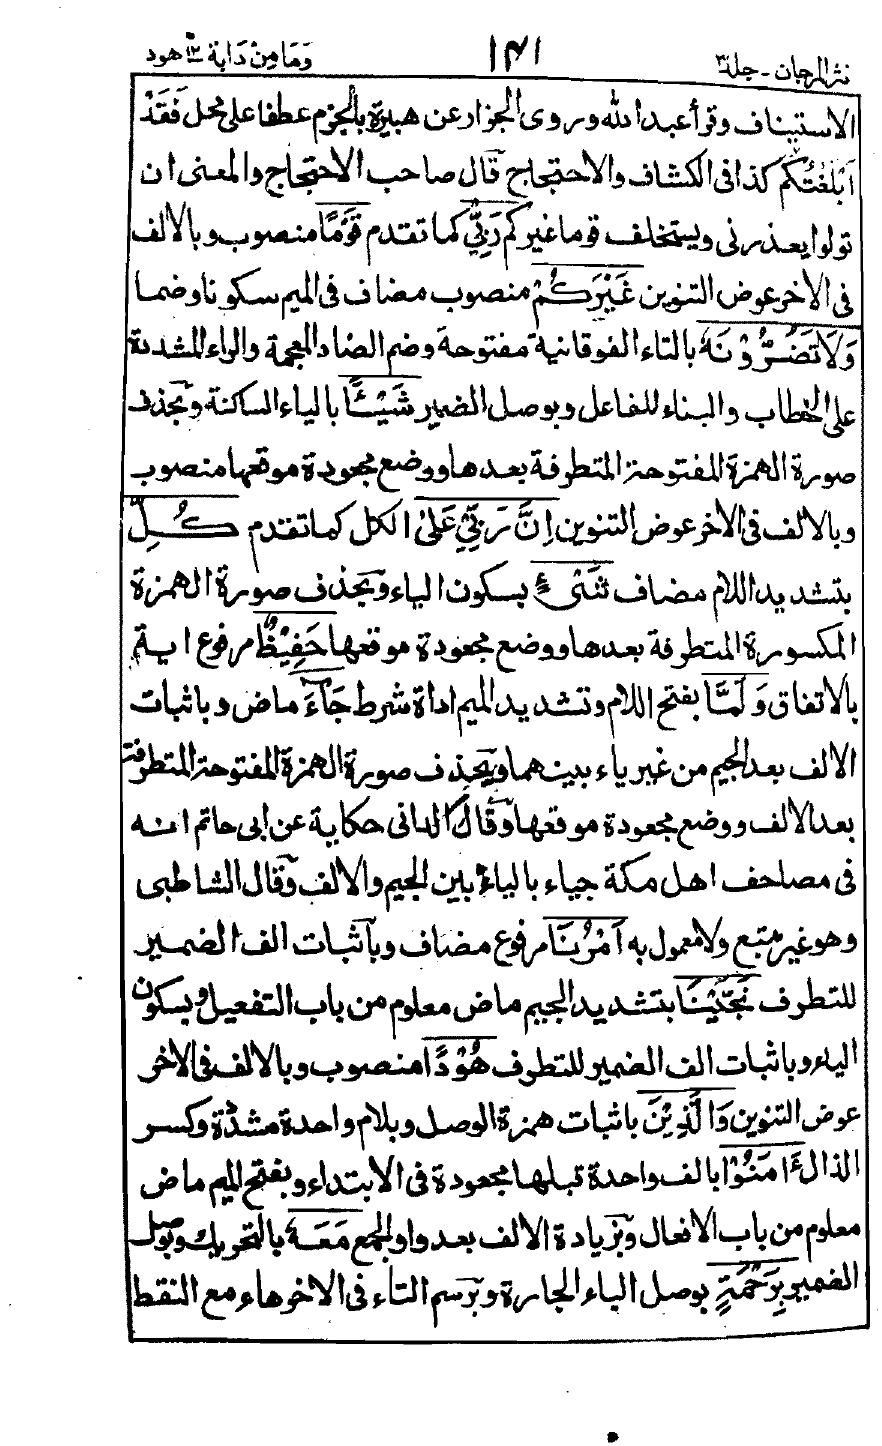 نثر المرجان - جلد ٣ ١٤١ وَمَا مِنْ دَابة ١٢ هود
الاستيناف وقرأ عبد الله وروى الجزار عن هبيرة بالجزم عطفا على محل فَقَدْ
اَبْلَغْتُكُم كذا فى الكشاف والاحتجاج قال صاحب الاحتجاج والمعنى ان
تولوا يعذرنى ويستخلف قوما غيركم رَبِّيْ كما تقدم قَوْمًا منصوب وبالالف
فى الاخر عوض التنوين غَيْرَكُمْ منصوب مضاف فى الميم سكونا وضما
وَلَا تَضُرُّوْنَهٗ بالتاء الفوقانية مفتوحة وضم الضاد المعجمة والراء المشددة
على الخطاب والبناء للفاعل وبوصل الضمير شَيْـًٔا بالياء الساكنة وبحذف
صورة الهمزة المفتوحة المتطرفة بعدها ووضع مجعودة موقعها منصوب
وبالالف فى الاخر عوض التنوين اِنَّ رَبِّيْ عَلىٰ الكل كما تقدم كُلِّ
بتشديد اللام مضاف شَىْءٍ بسكون الياء وبحذف صورة الهمزة
المكسورة المتطرفة بعدها ووضع مجعودة موقعها حَفِيْظٌ مرفوع اية
بالاتفاق وَلَمَّا بفتح اللام وتشديد الميم اداة شرط جَآءَ ماض وباثبات
الالف بعد الجيم من غير ياء بينهما وبحذف صورة الهمزة المفتوحة المتطرفة
بعد الالف ووضع مجعودة موقعها وقال الدانى حكاية عن ابى حاتم انه
فى مصاحف اهل مكة جياء بالياء بين الجيم والالف وقال الشاطبى
وهو غير متبع ولا معمول به اَمْرُنَا مرفوع مضاف وباثبات الف الضمير
للتطرف نَجَّيْنَا بتشديد الجيم ماض معلوم من باب التفعيل وبسكون
الياء وباثبات الف الضمير للتطرف هُوْدًا منصوب وبالالف فى الاخر
عوض التنوين وَالَّذِيْنَ باثبات همزة الوصل وبلام واحدة مشددة وكسر
الذال ءَامَنُوْا بالف واحدة قبلها مجعودة فى الابتداء وبفتح الميم ماض
معلوم من باب الافعال وبزيادة الالف بعد واو الجمع مَعَهٗ بالتحريك وبوصل
الضمير بِرَحْمَةٍ بوصل الباء الجارة وبرسم التاء فى الاخر هاء مع النقط